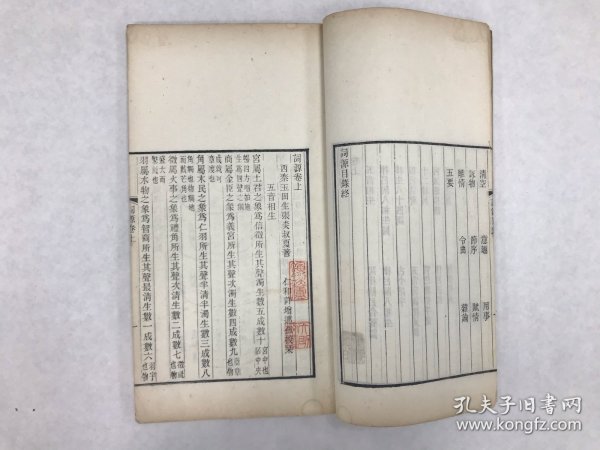 清空　意趣　用事
詠物　節序　賦情
離情　令曲　雜論
五要
詞源目錄終
詞源卷上
西秦玉田生張炎叔夏著
仁和許增邁孫校栞
五音相生
宮屬土君之象爲信徵所生其聲濁生數五成數十
商屬金臣之象爲義宮所生其聲次濁生數四成數九
角屬木民之象爲仁羽所生其聲半清半濁生數三成數八
徵屬火事之象爲禮角所生其聲次清生數二成數七
羽屬水物之象爲智商所生其聲最清生數一成數六
詞源卷上
孔夫子旧书网
www.kongfz.com